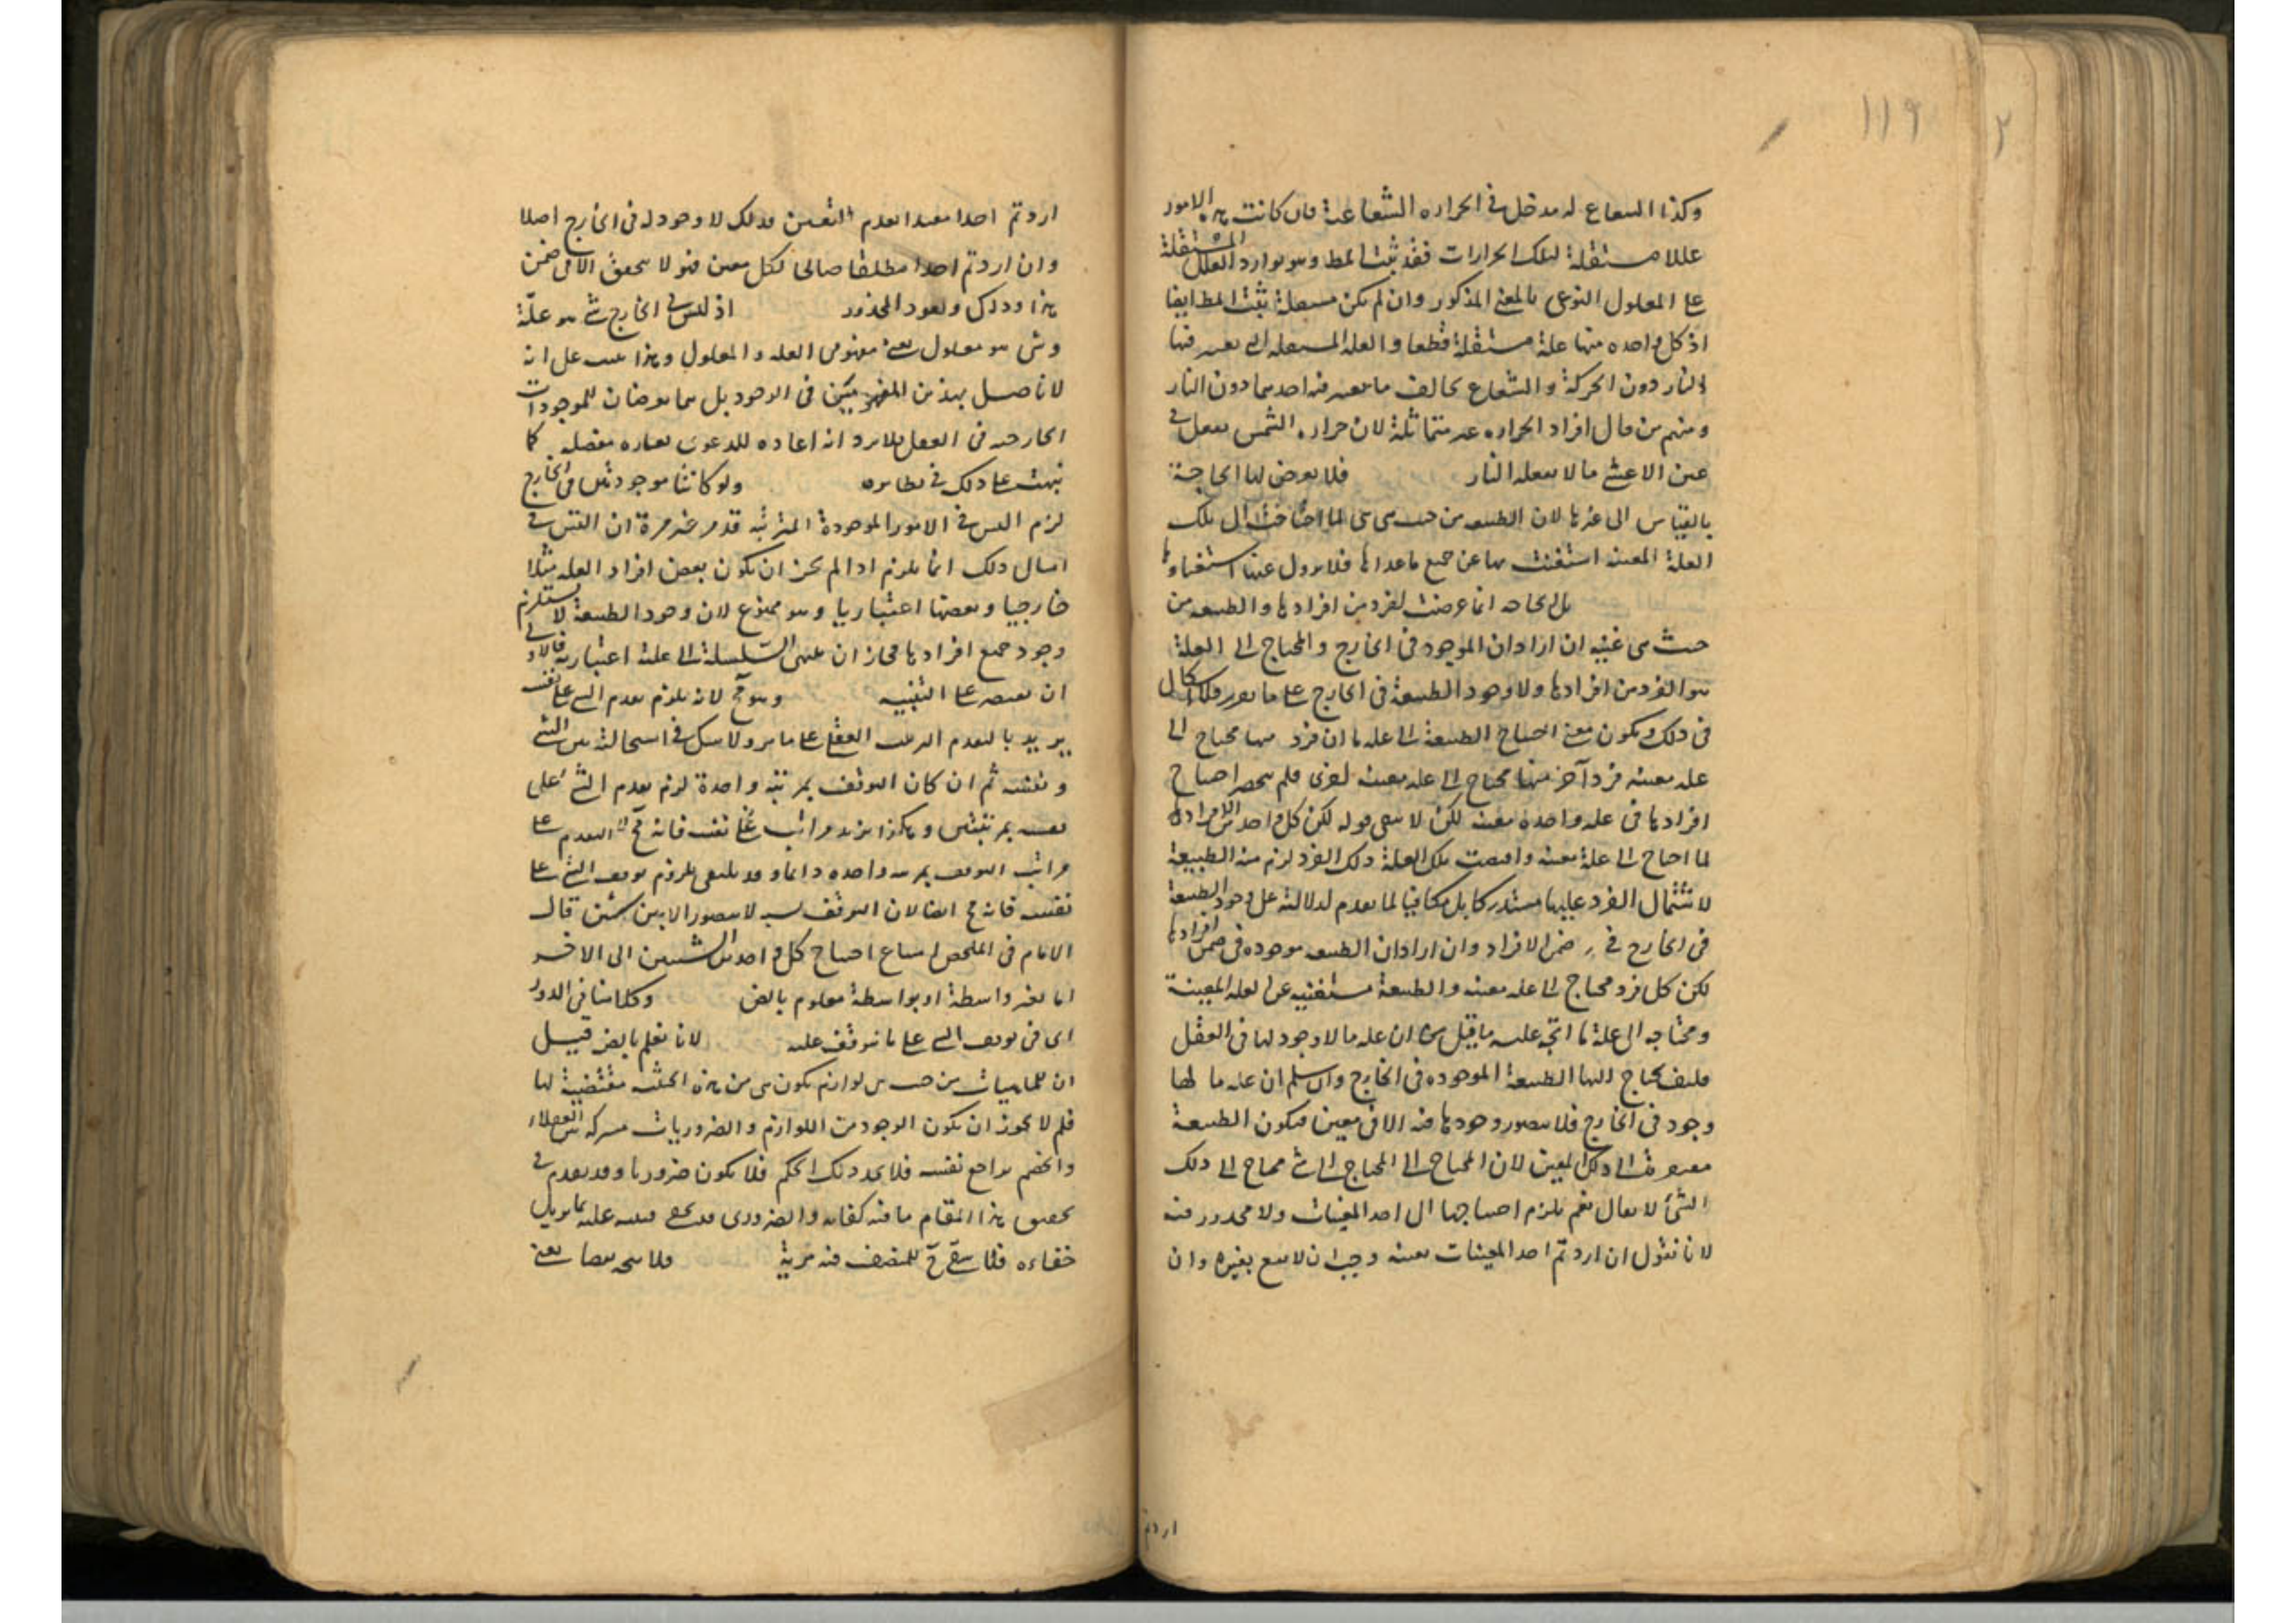 ١١٩
وكذا الشعاع له مدخل في الحرارة الشعاعية فان كانت هذه الامور
عللا مستقلة لتلك الحرارات فقد ثبت المط وهو توارد العلل المستقلة
على المعلول النوعي بالمعنى المذكور وان لم تكن مستقلة ثبت المط ايضا
اذ كل واحدة منها علة مستقلة قطعا والعلة المستقلة التي يعتبر فيها
النار دون الحركة والشعاع يخالف ما يعتبر فيه احدهما دون النار
ومنهم من قال افراد الحرارة غير متماثلة لان حرارة الشمس يفعل في
عين الاعشى ما لا يفعله النار فلا يعرض لها الحاجة
بالقياس الى غيرها لان الطبيعة من حيث هي هي لما احتاجت الى تلك
العلة المعينة استغنت بها عن جميع ما عداها فلا يزول عنها استغناؤها
بل الحاجة انما عرضت لفرد من افرادها والطبيعة من
حيث هي غنية ان اراد ان الموجود في الخارج والمحتاج الى العلة
هو الفرد من افرادها ولا وجود للطبيعة في الخارج على ما يقرر فلا اشكال
في ذلك ويكون معنى احتياج الطبيعة الى علة ما ان فرد منها محتاج الى
علة معينة فرد آخر منها محتاج الى علة معينة اخرى فلم ينحصر احتياج
افرادها في علة واحدة معينة لكن لا يبقى قوله لكن كل واحد من الافراد
لما احتاج الى علة معينة واقتضت تلك العلة ذلك الفرد لزم منه الطبيعة
لاشتمال الفرد عليها مستدركا بل منافيا لما تقدم لدلالته على وجود الطبيعة
في الخارج في ضمن الافراد وان اراد ان الطبيعة موجودة في ضمن افرادها
لكن كل فرد محتاج الى علة معينة والطبيعة مستغنية عن العلة المعينة
ومحتاجة الى علة ما اتجه عليه ما قيل من ان علة ما لا وجود لها في العقل
فكيف يحتاج اليها الطبيعة الموجودة في الخارج وان سلم ان علة ما لها
وجود في الخارج فلا يتصور وجودها فيه الا في معين فيكون الطبيعة
مفتقرة الى ذلك المعين لان المحتاج الى المحتاج الى شئ محتاج الى ذلك
الشئ لا يقال نعم يلزم احتياجها الى احد المعينات ولا محذور فيه
لانا نقول ان اردتم احد المعينات بعينه وجب ان لا يقع بغيره وان
اردتم
اردتم احدا مقيدا بعدم التعين فذلك لا وجود له في الخارج اصلا
وان اردتم احدا مطلقا صالحا لكل معين فهو لا يتحقق الا في ضمن
هذا وذاك ويعود المحذور اذ ليس في الخارج شئ هو علة
وشئ هو معلول يعني مفهومي العلة والمعلول وهذا تنبيه على انه
لا تاصل بهذين المفهومين في الوجود بل هما يعرضان للموجودات
الخارجية في العقل فلا يرد انه اعادة للدعوى بعبارة مفصلة كما
نبهت على ذلك في نظائره ولو كانتا موجودتين في الخارج
لزم التس في الامور الموجودة المترتبة قد مر غير مرة ان التس في
امثال ذلك انما يلزم اذا لم يجز ان يكون بعض افراد العلة مثلا
خارجيا وبعضها اعتباريا وهو ممنوع لان وجود الطبيعة لا يستلزم
وجود جميع افرادها فجاز ان ينتهي السلسلة الى علة اعتبارية فالاولى
ان يقتصر على التنبيه وهو مح لانه يلزم تقدم الشئ على نفسه
يريد بالتقدم الترتب العقلي على ما مر ولا شك في استحالته بين الشئ
ونفسه ثم ان كان التوقف بمرتبة واحدة لزم تقدم الشئ على
نفسه بمرتبتين وهكذا يزيد مراتب التقدم على
مراتب التوقف بمرتبة واحدة دائما وقد يكتفى بلزوم توقف الشئ على
نفسه فانه مح ايضا لان التوقف نسبة لا يتصور الا بين شيئين قال
الامام في الملخص امتناع احتياج كل واحد من الشيئين الى الاخر
اما بغير واسطة او بواسطة معلوم بالض وكلامنا في الدور
اي في توقف الشئ على ما يتوقف عليه لانا نعلم بالض قيل
ان للماهيات من حيث هي لوازم يكون هي من هذه الحيثية مقتضية لها
فلم لا يجوز ان يكون الوجود من اللوازم والضروريات مشتركة بين العقلاء
والخصم يراجع نفسه فلا يجد ذلك الحكم فلا يكون ضروريا وقد تقدم في
تحقيق هذا المقام ما فيه كفاية والضروري قد يخفى فينبه عليه بما يزيل
خفاءه فلا يبقى ح للمنصف فيه مرية فلا يتجه